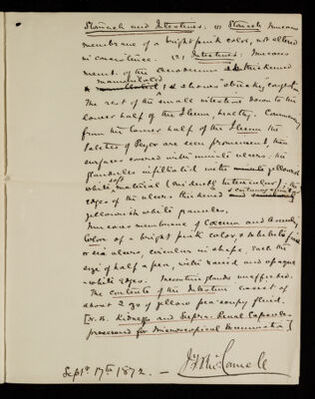 Stomach and Intestines: (1) Stomach Mucous
membrane of a bright pink color, not altered
in consistence. (2) Intestines: Mucous
memb. of the duodenum thickened
mammillated & shows streaky congestion
The rest of the small intestine down to the
lower half of the Ileum, healthy. Commencing
from the lower half of the Ileum the
patches of Peyer are seen prominent, their
surfaces covered with minute ulcers, the
glandulæ infiltrated with yellowish
white soft material (evidently tubercular), the
edges of the ulcers thickened
yellowish white granules.
Mucous membrane of Cæcum and Ascending
Colon of a bright pink color, & exhibits five
or six ulcers, circular in shape, each the
size of half a pea, with raised and opaque
white edges. Mesenteric glands unaffected.
The contents of the Intestine consist of
about 2 oz of yellow pea-soupy fluid.
[N.B. Kidneys and Supra-Renal Capsules
preserved for Microscopical Examination]
Septr. 17th 1872. —